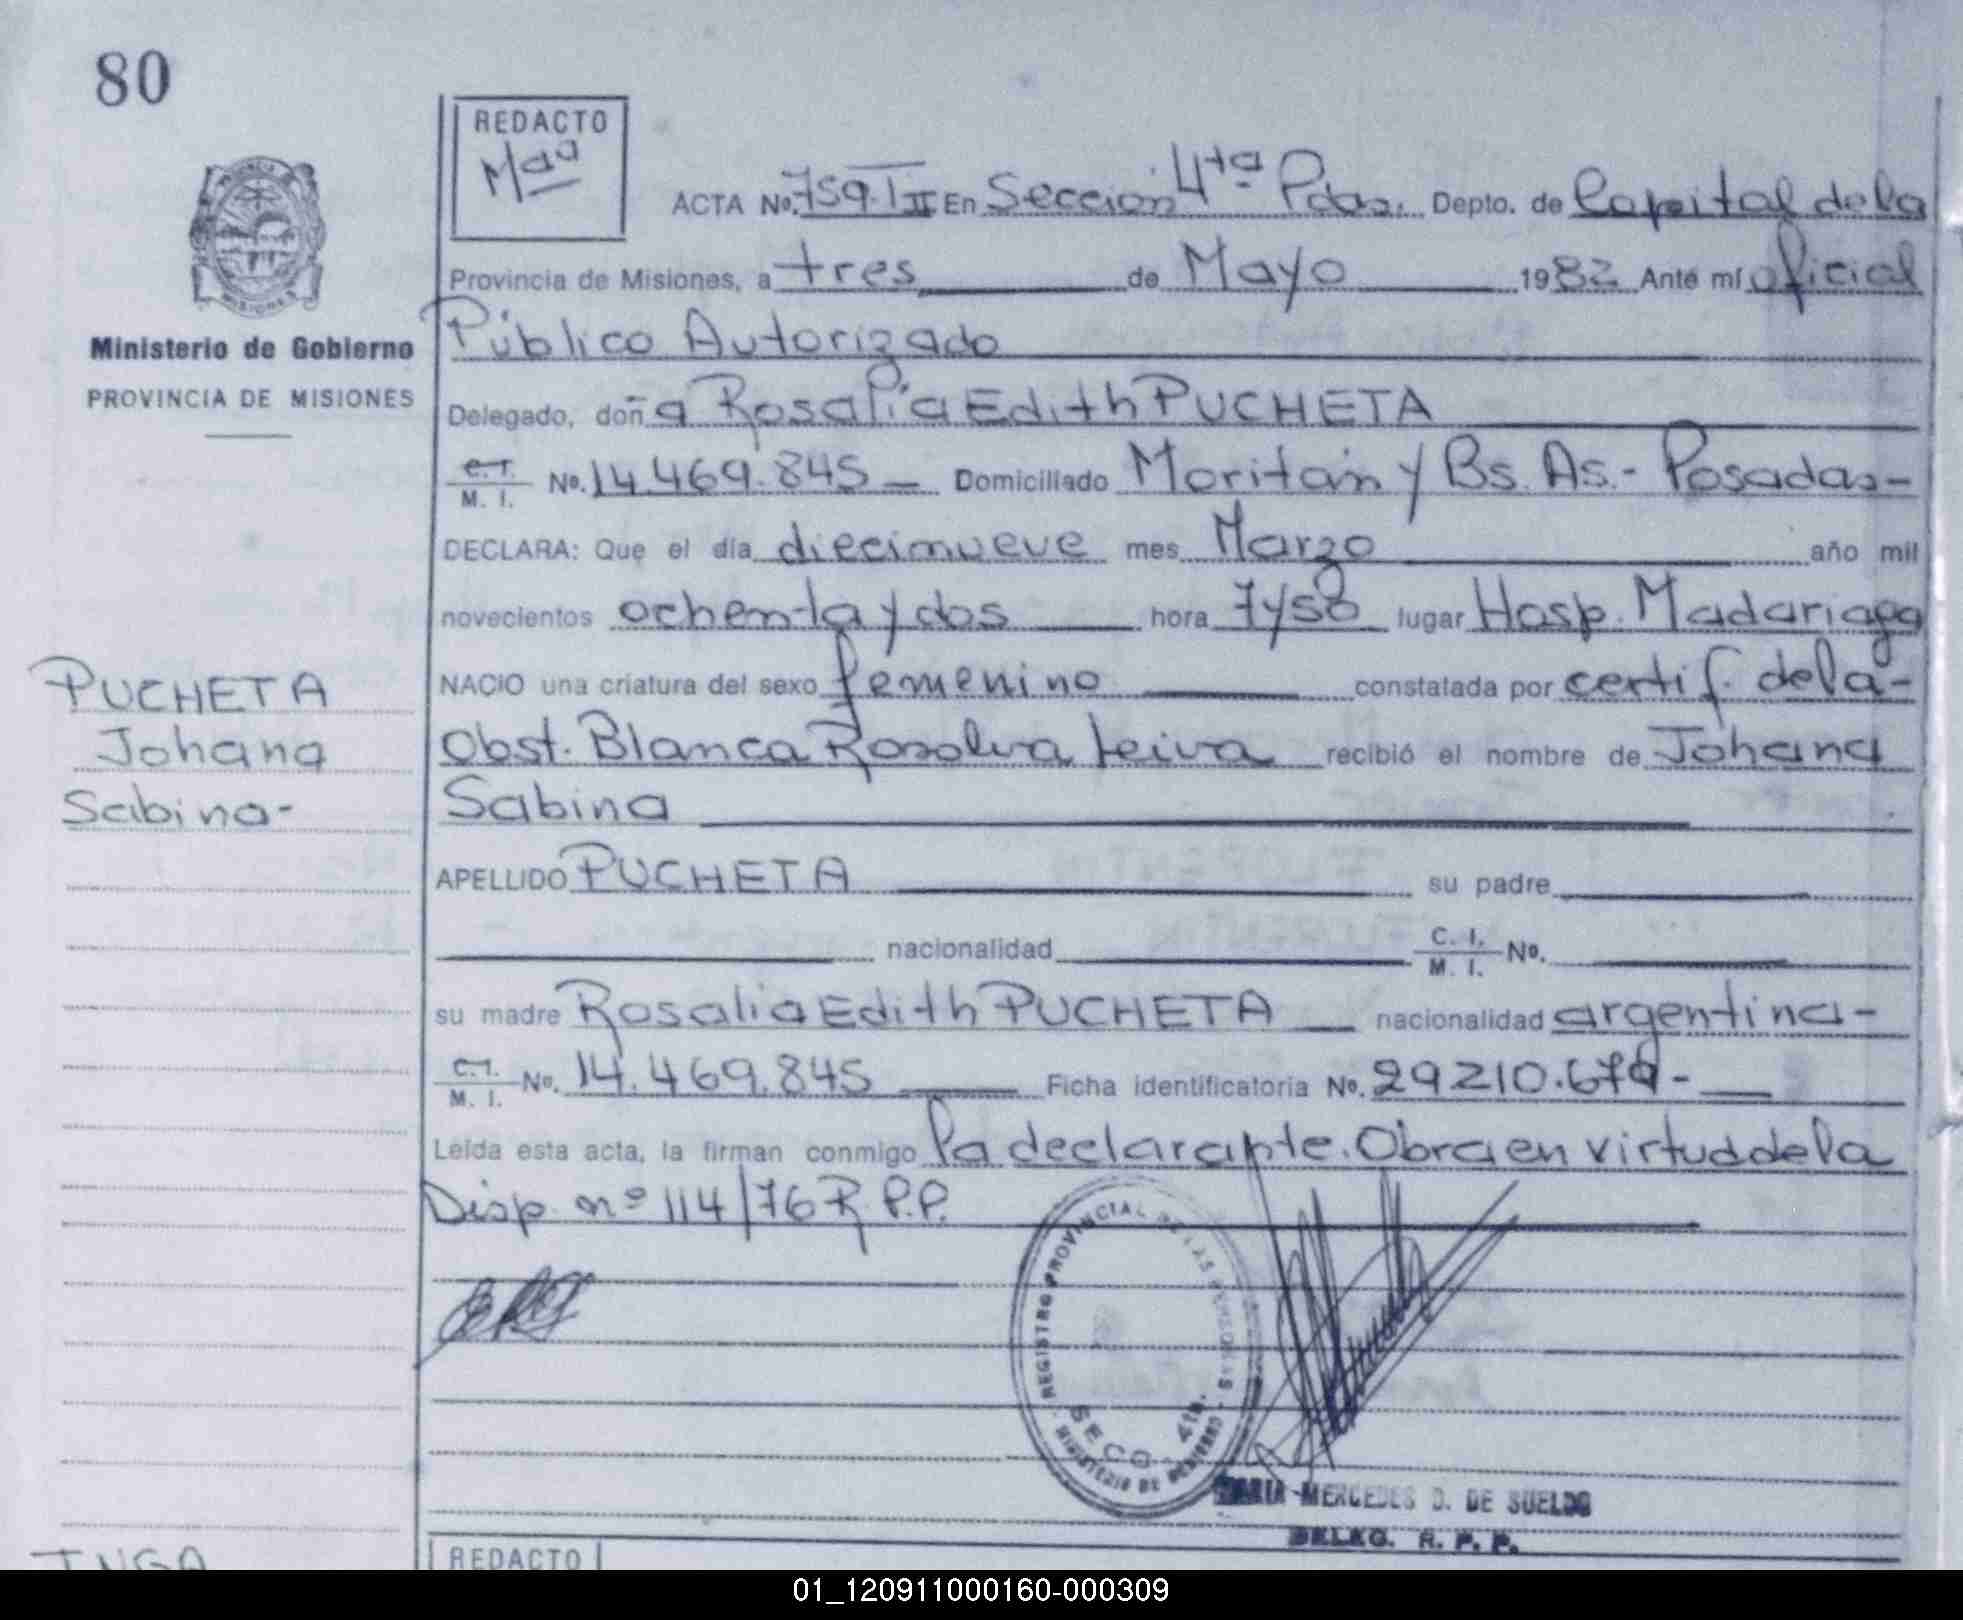 80
REDACTO
Mªª
PROVINCIA DE MISIONES
ACTA No. 759. T II En Sección 4ta Pdas. Depto. de Capital de la
Provincia de Misiones, a tres de Mayo 1982 Ante mí Oficial
Público Autorizado
Ministerio de Gobierno
PROVINCIA DE MISIONES
Delegado, doña Rosalía Edith PUCHETA
C.I. M. I. No. 14.469.845 — Domiciliado Moritán y Bs. As. - Posadas -
DECLARA: Que el día diecinueve mes Marzo año mil
novecientos ochenta y dos hora 7 y 50 lugar Hosp. Madariaga
NACIO una criatura del sexo femenino constatada por certif. de la -
Obst. Blanca Rosalva Leiva recibió el nombre de Johana
Sabina
PUCHETA
Johana
Sabina -
APELLIDO PUCHETA su padre
nacionalidad C. I. M. I. No.
su madre Rosalia Edith PUCHETA — nacionalidad argentina -
C.I. M. I. No. 14.469.845 Ficha identificatoria No. 29210.679 -
Leída esta acta, la firman conmigo la declarante. Obra en virtud de la
Disp. nº 114/76 R.P.P.
REGISTRO PROVINCIAL DE LAS PERSONAS
SECC. 4ta.
MINISTERIO DE GOBIERNO
MARIA MERCEDES D. DE SUELDO
DELEG. R. P. P.
REDACTO
01_120911000160-000309